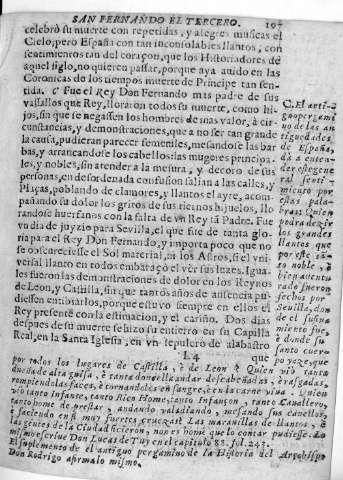 SAN FERNANDO EL TERCERO. 107
celebrò su muerte con repetidas, y alegres musicas el
Cielo, pero España con tan inconsolables llantos, con
sentimientos tan del coraçon, que los Historiadores de
aquel siglo, no quieren passar, porque aya auido en las
Coronicas de los tiempos muerte de Principe tan sen-
tida. c Fue el Rey Don Fernando mas padre de sus
vassallos que Rey, lloraron todos su muerte, como hi-
jos, sin que se negassen los hombres de mas valor, à cir-
cunstancias, y demonstraciones, que a no ser tan grande
la causa, pudieran parecer femeniles, mesandose las bar
bas, y arrancandose los cabellos: las mugeres principa-
les, y nobles, sin atender a la mesura, y decoro de sus
personas, en desordenada confusion salian a las calles, y
Plaças, poblando de clamores, y llantos el ayre, acom-
pañando su dolor los gritos de sus tiernos hijuelos, llo
randose huerfanos con la falta de vn Rey tã Padre. Fue
vn dia de juyzio para Sevilla, el que fue de tanta glo-
ria para el Rey Don Fernando, y importa poco que no
se obscureciesse el Sol material, ni los Astros, si el vni-
versal llanto en todos embaraçò el ver sus luzes. Igua-
les fueron las demonstraciones de dolor en los Reynos
de Leon, y Castilla, sin que tantos años de ausencia pu-
diessen entibiarlos, porque estuvo siempre en ellos el
Rey presente con la estimacion, y el cariño. Dos dias
despues de su muerte se hizo su entierro en su Capilla
Real, en la Santa Iglesia, en vn sepulcro de alabastro
L4 que
C. El anti-
guo pergami
no de las an
tiguedades
de España,
dà a enten-
der este gene
ral senti-
miento por
estas pala-
bras: Quien
podrà dezir
los grandes
llantos que
por este sã-
to noble, è
bien aventu
rado fueron
fechos por
Sevilla, don
de el su fina
miento fue,
è donde su
santo cuer-
po yaze, que
por todos los lugares de Castilla, è de Leon è Quien vió tanta
dueña de alta guisa, è tanta doncella andar descabeñadas, è rasgadas,
rompiendolas faces, è tornandolas en sangre, è en la carne viva. Quien
vio tanto Infante, tanto Rico Home, tanto Infançon, tanto Cavallero,
tanto home de prestar, andando valadiando, mesando sus cavellos,
è faciendo en si muy fuertes cruezas? Las maravillas de llantos, è
las gentes de la Ciudad ficieron, non es home que lo contar pudiesse. Lo
mismo escriue Don Lucas de Tuy en el capitulo 83. fol. 243.
El suplemento de el antiguo pergamino de la Historia del Arçobispo
Don Rodrigo afirma lo mismo.